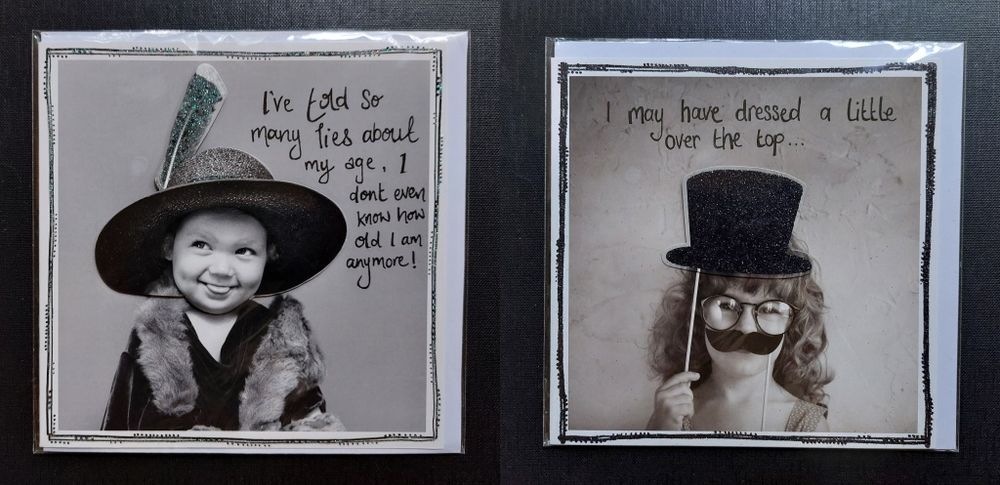 I've told so
many lies about
my age, I
dont even
know how
old I am
anymore!
I may have dressed a little
over the top...